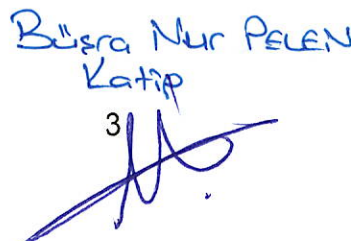 Büşra Nur PELEN
Katip
3